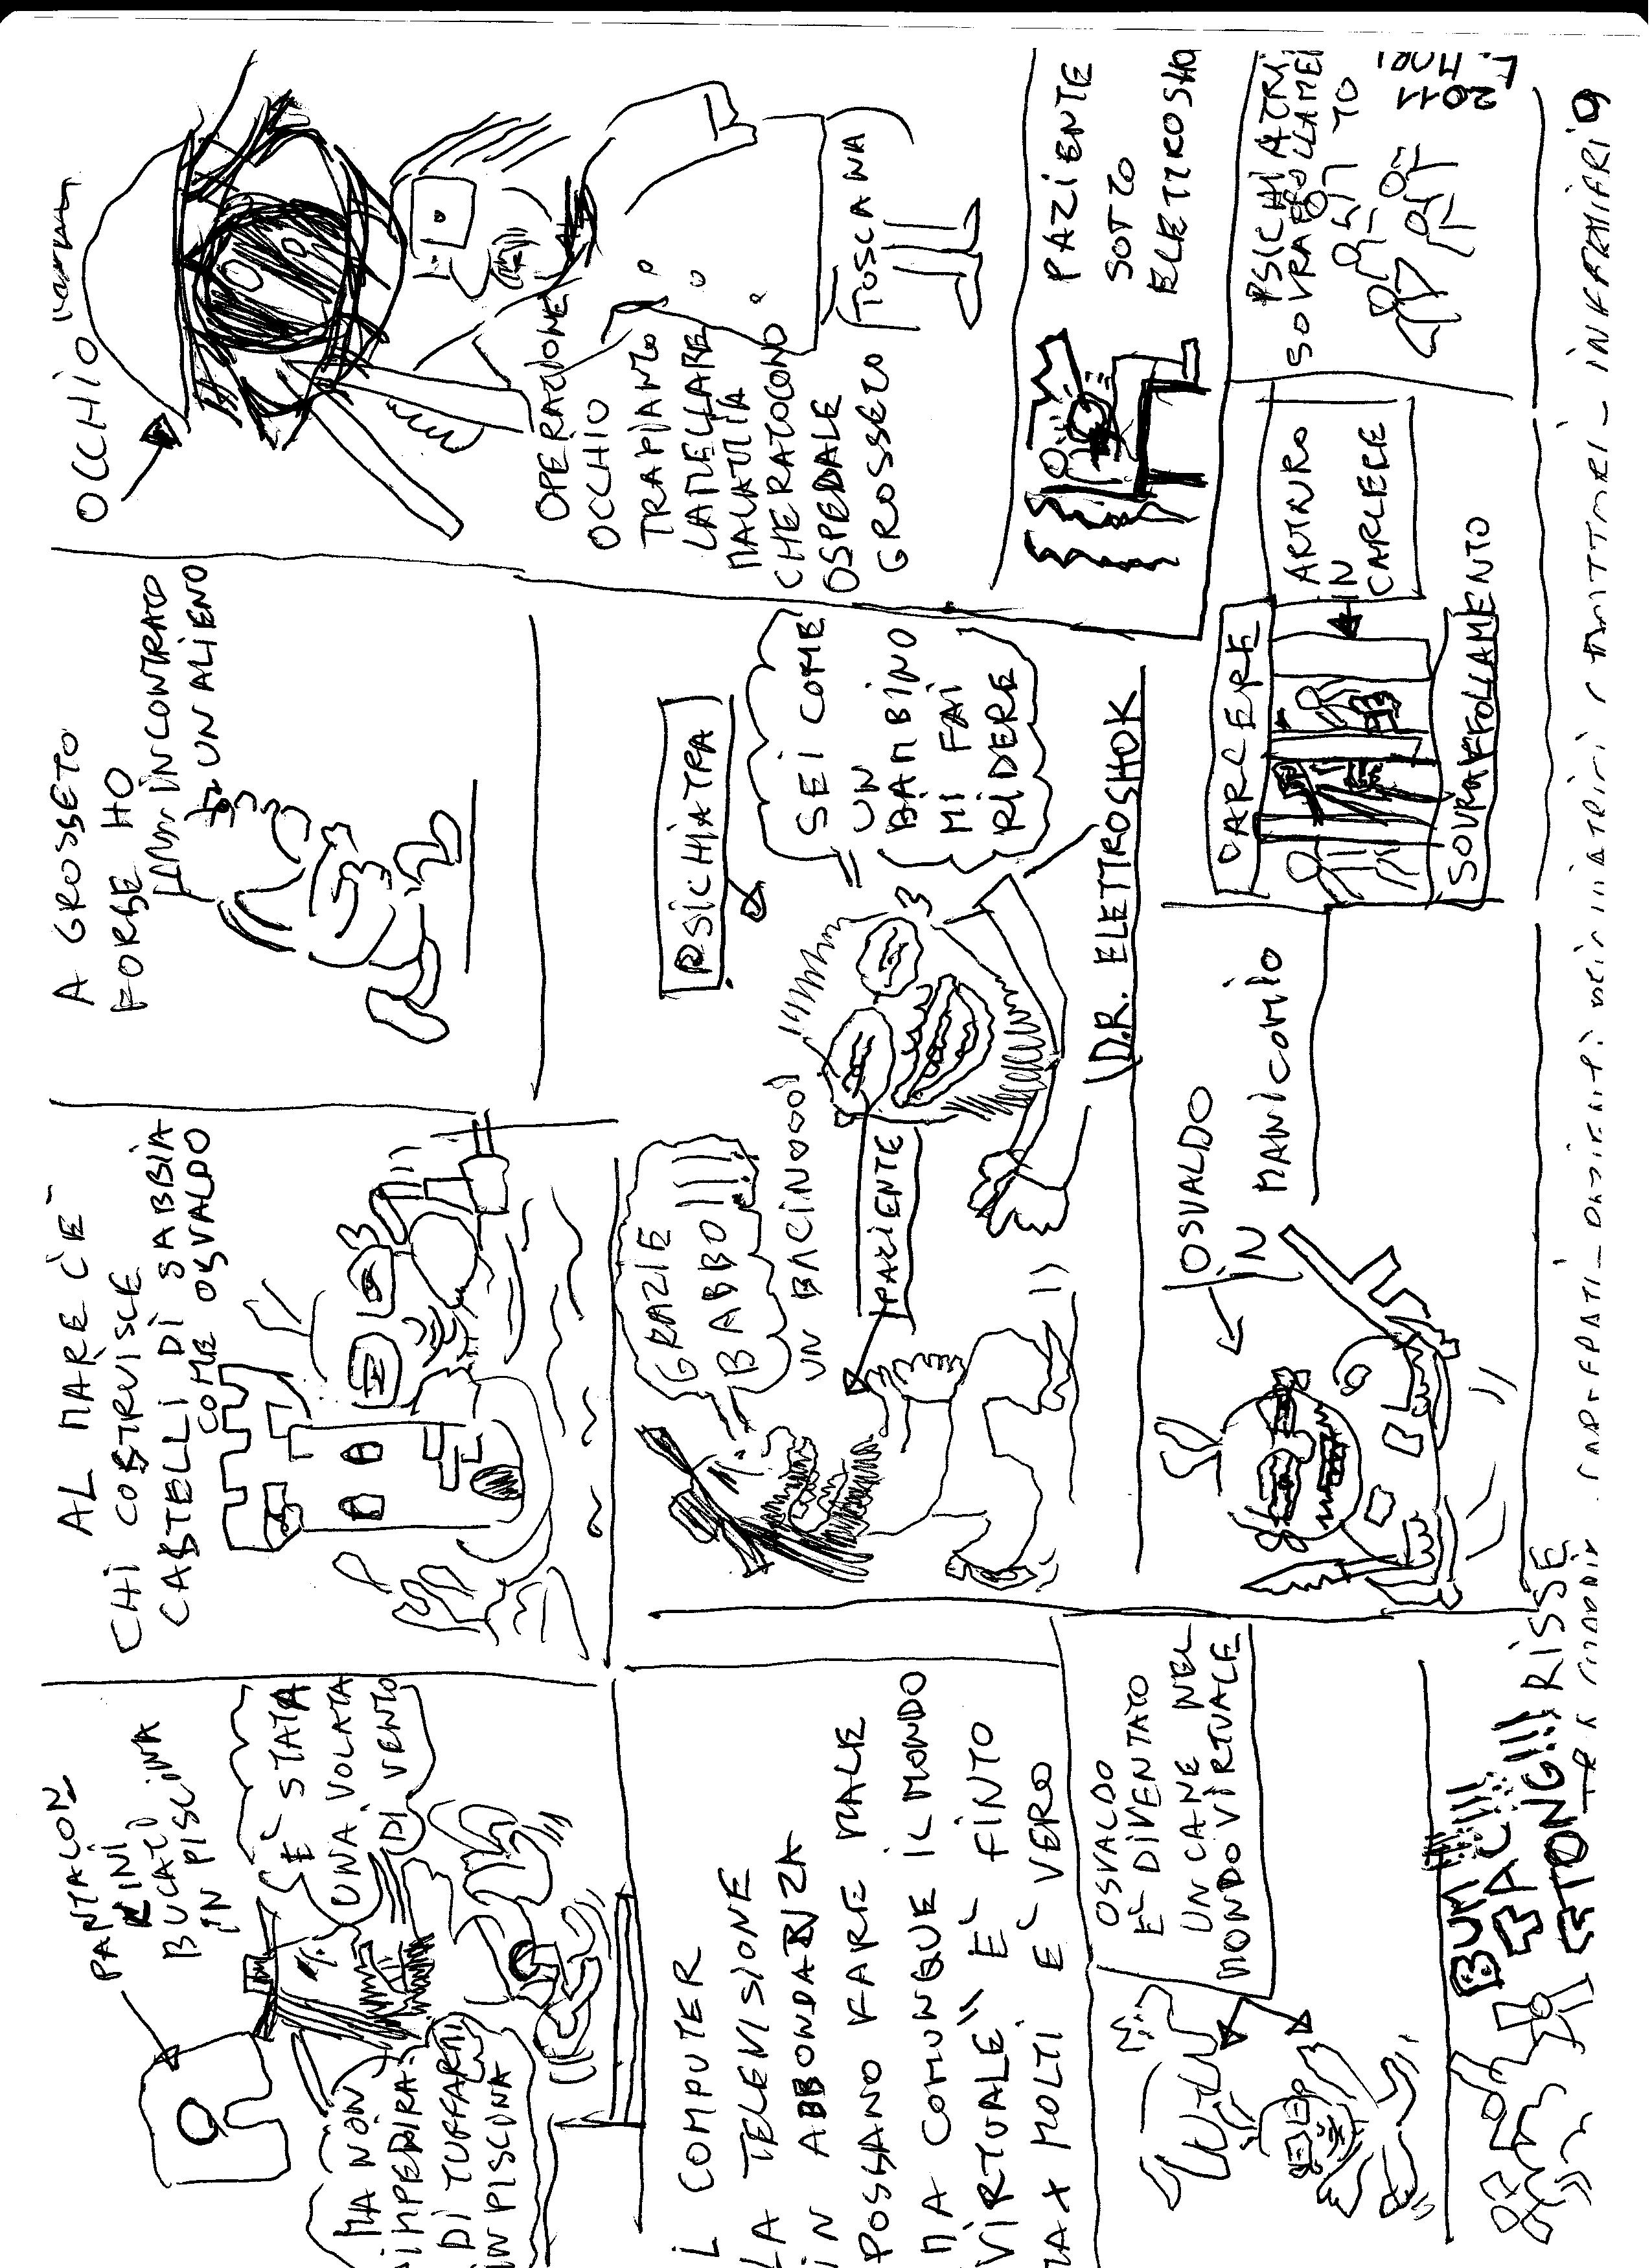 PANTALON
CINI
BUCATI
IN PISCINA
È STATA
UNA VOLATA
DI VENTO
MA NON
IMPEDIRA
DI TUFFARMI
IN PISCINA
AL MARE C'È
CHI COSTRUISCE
CASTELLI DI SABBIA
COME OSVALDO
A GROSSETO
FORSE HO
INCONTRATO
UN ALIENO
OCCHIO
OPERAZIONE
OCCHIO
TRAPIANTO
LAMELLARE
MALATTIA
CHERATOCONO
OSPEDALE
GROSSETO
TOSCANA
L COMPUTER
LA TELEVISIONE
IN ABBONDANZA
POSSANO FARE MALE
MA COMUNQUE IL MONDO
VIRTUALE" È FINTO
MA X MOLTI È VERO
GRAZIE
BABBO!!!!
UN BACINOOO!
PAZIENTE
PSICHIATRA
SEI COME
UN
BAMBINO
MI FAI
RIDERE
D.R. ELETTROSHOK
PAZIENTE
SOTTO
ELETTROSHO
OSVALDO
È DIVENTATO
UN CANE NEL
MONDO VIRTUALE
OSVALDO
IN
MANICOMIO
CARCERE
ARTURO
IN
CARCERE
SOVRAFFOLLAMENTO
PSICHIATRI
SOVRAFFOLLAMEN
TO
2011
F. MORI
BUM!!!!
TAC!!!
STONG!!!
RISSE
TRA
INFERMIERI